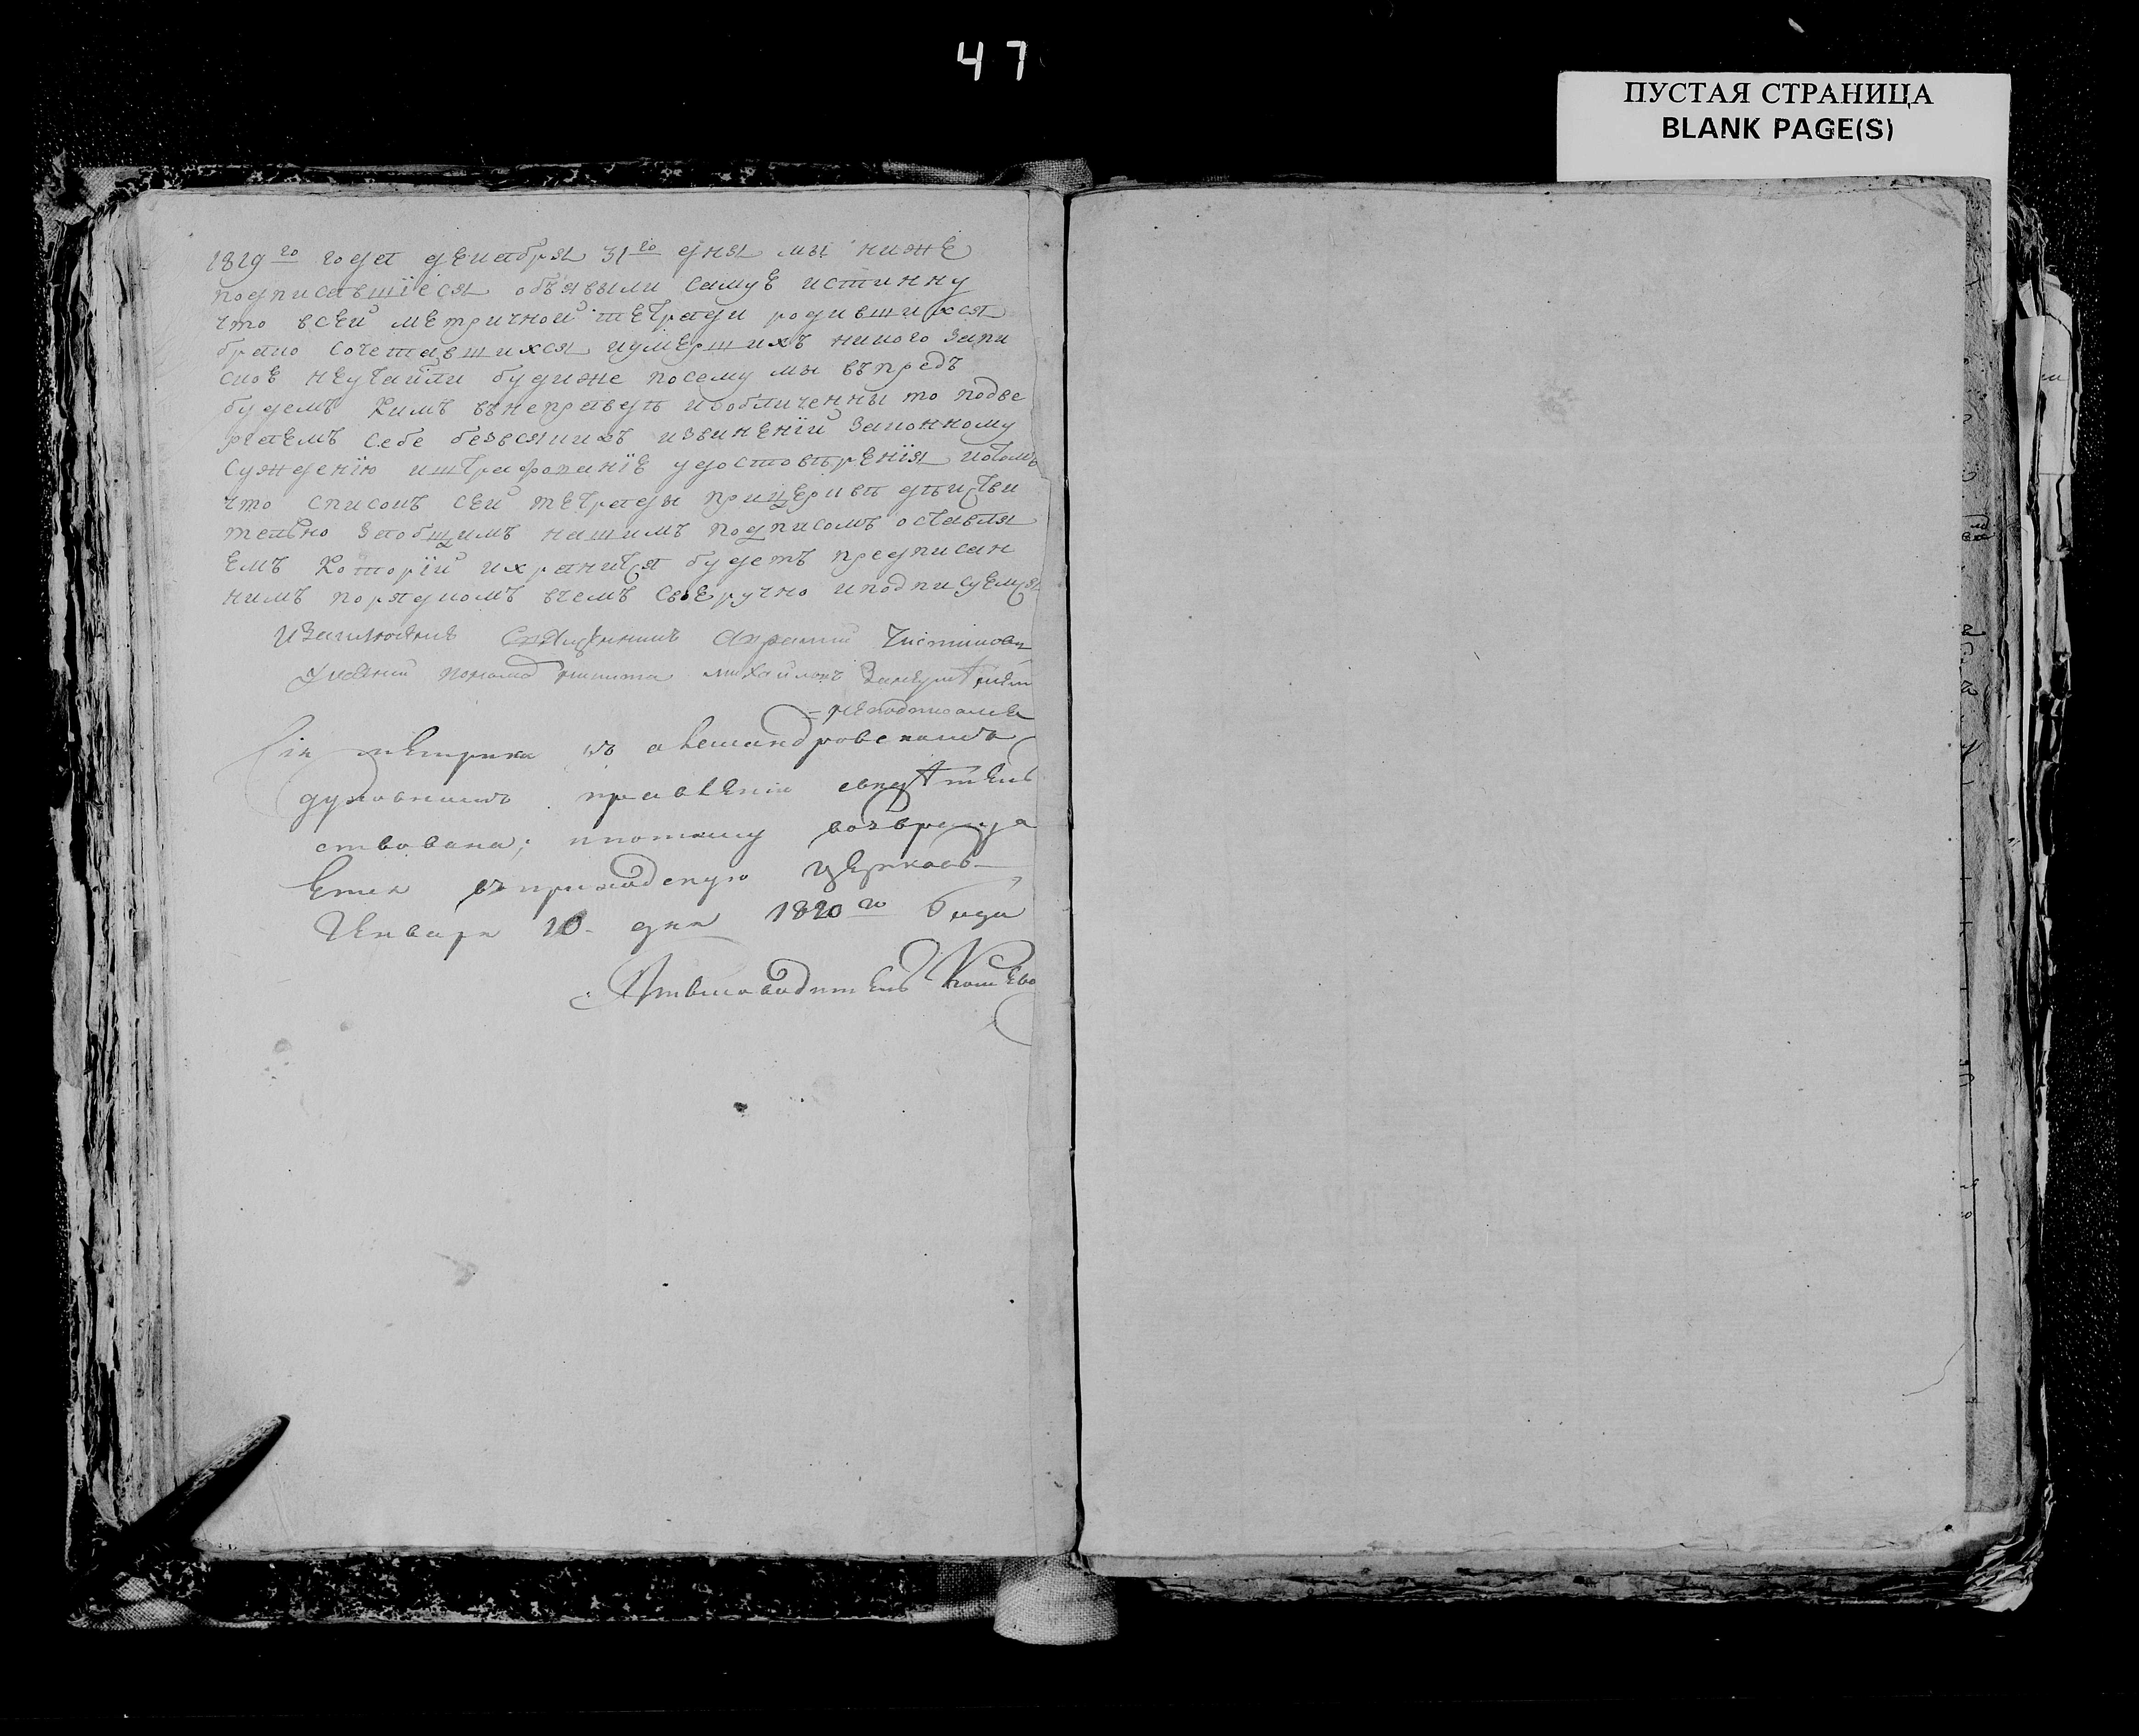 47
ПУСТАЯ СТРАНИЦА
BLANK PAGE(S)
1819 го года декабря 31 го дня мы ниже
подписавшїеся объявыли самуе истинну
что всей метричной тетради родившихся
брако сочетавшихся иумершихъ никого запи
сков неутаїли будиже посему мы въпредь
будемъ кимъ вънеправды иобличенны то подве
ргаемъ себе безвсякихъ извиненїй законному
сужденїю иштрафованїе удостовѣренїя
что списокъ сей тетрады прицеркви дѣистви
тельно заобщимъ нашимъ подписомъ оставля
емъ которїй ихранится будетъ предписан
нимъ порядкомъ вчемъ своеручно иподписуемся
Священникъ
понома никита михайловъ
Сія метрика въ александровскомъ
духовномъ правленіи свидѣтель
ствована; ипотому возвраща
ется въприходскую церковь
Января 10 дня 1820 го года